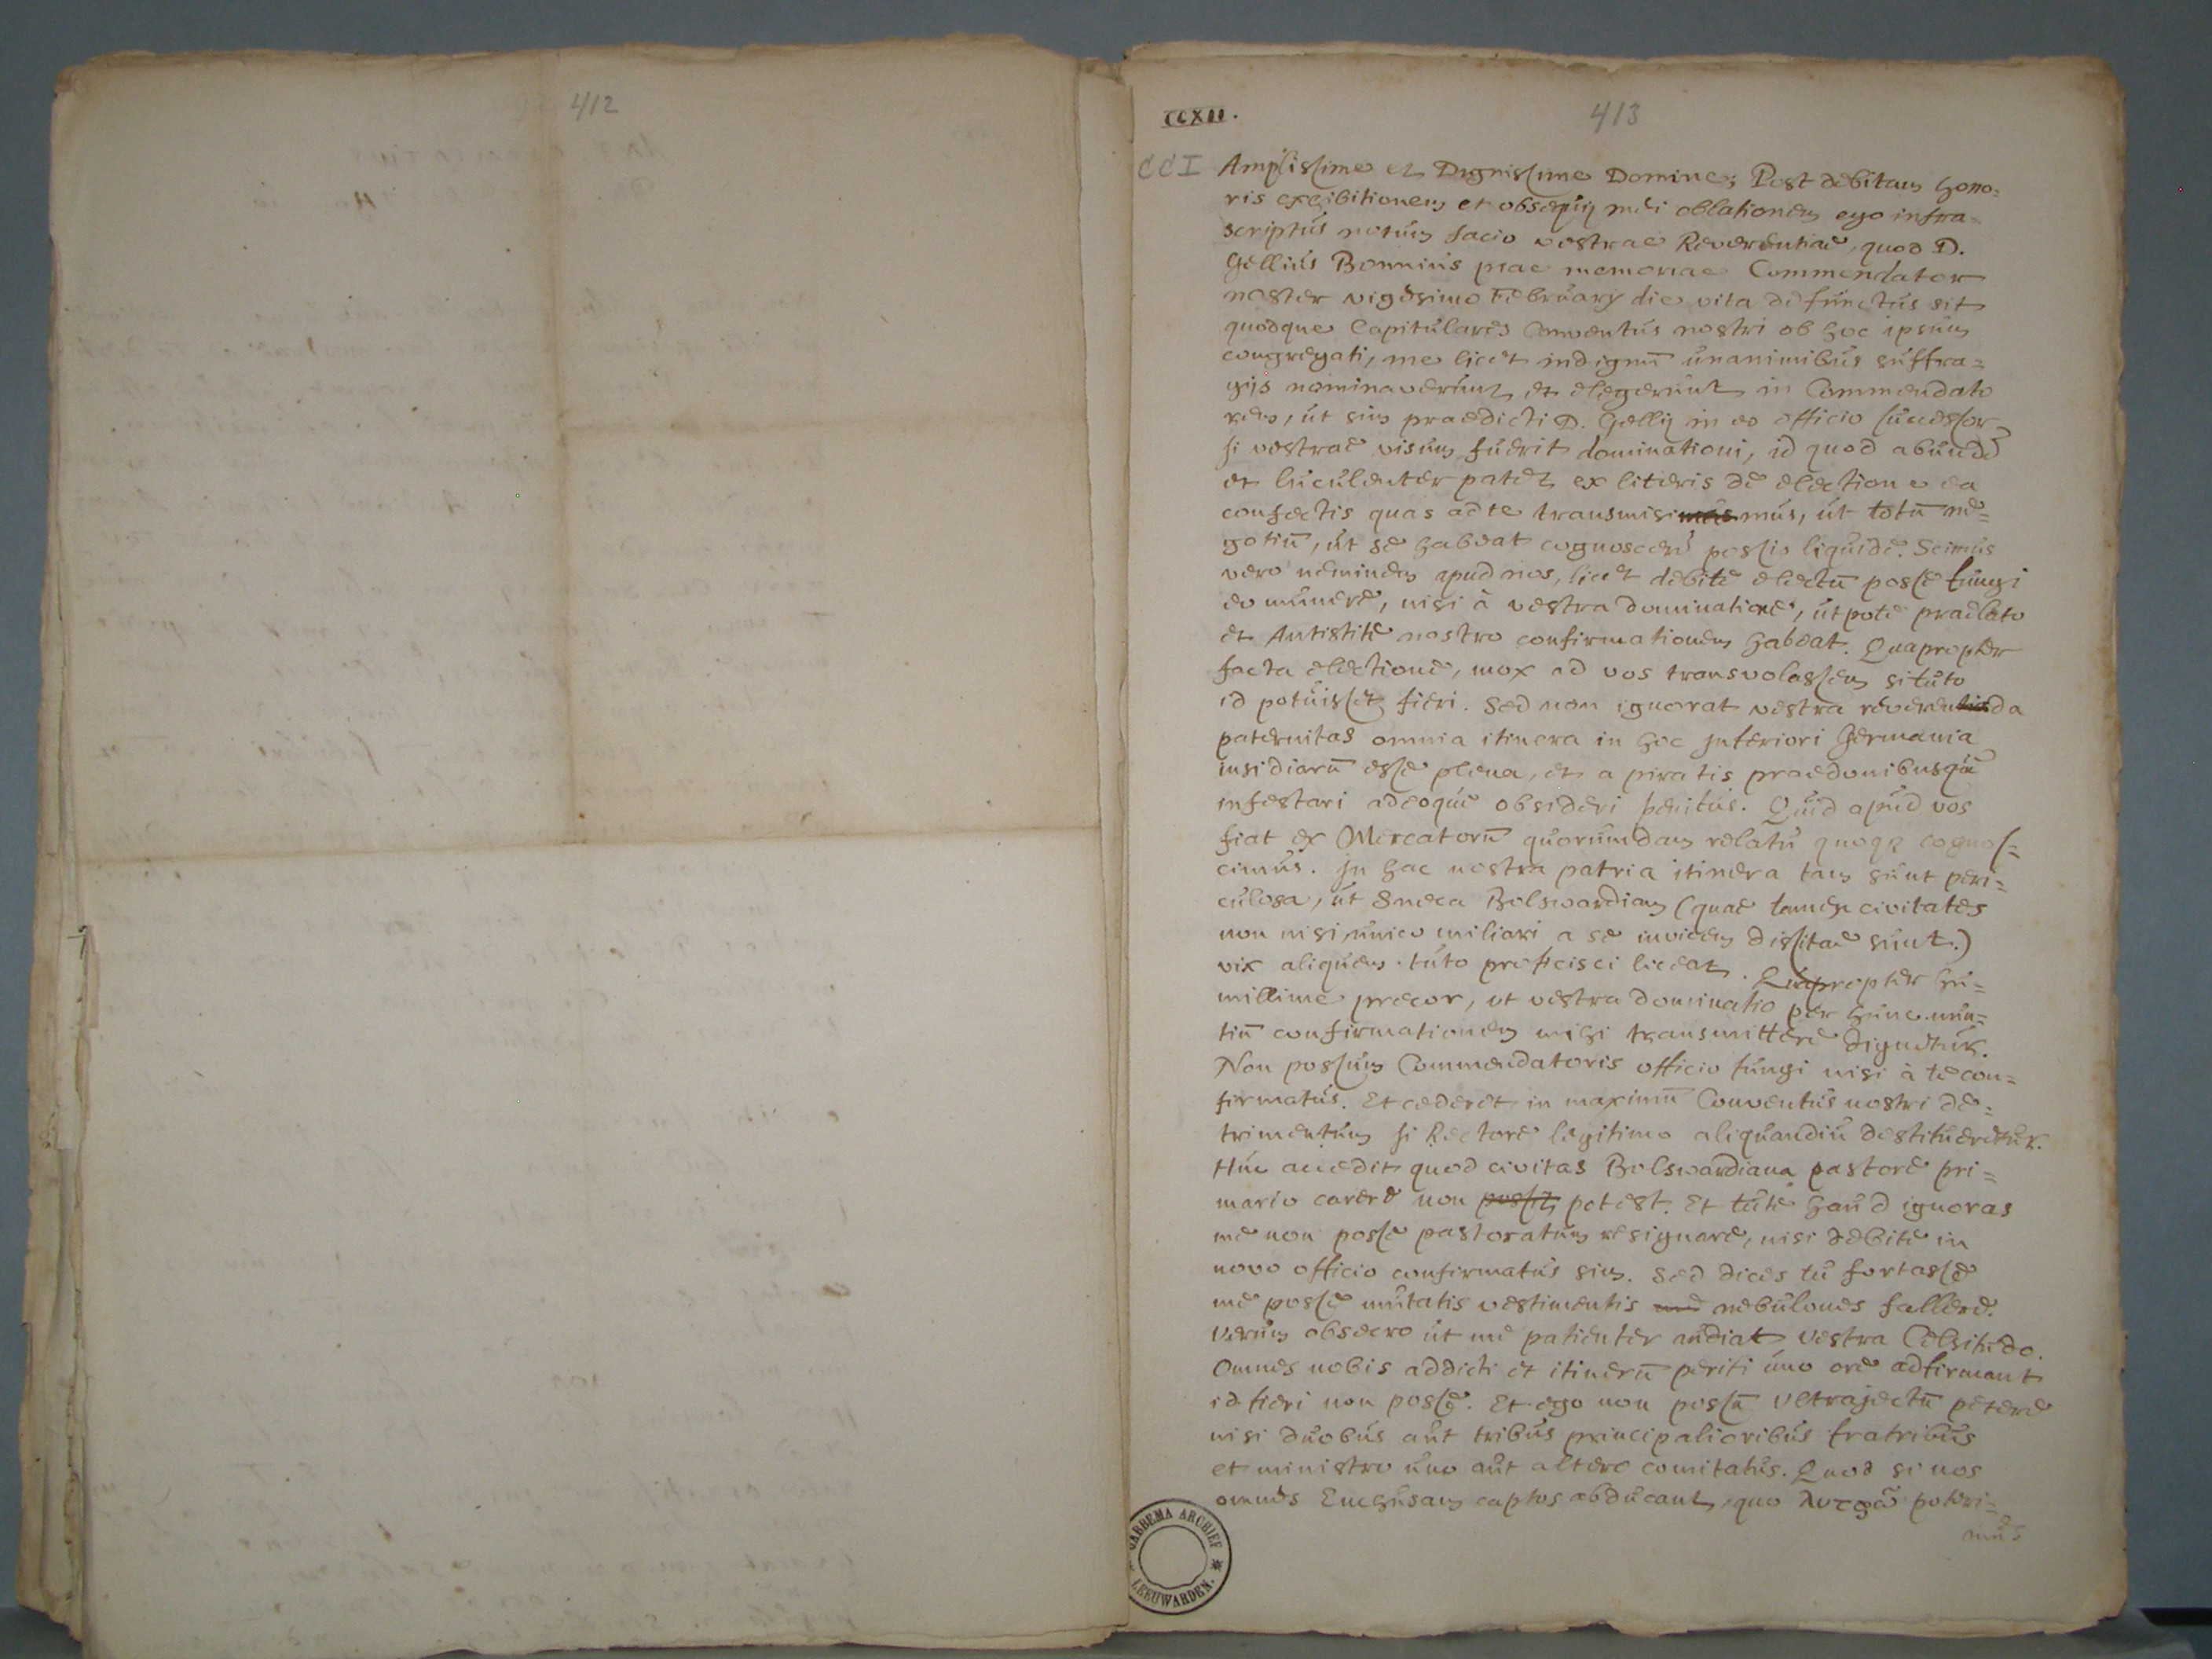 412
413
CCXII.
CCI
Amplissime et Dignissime Domine; Post debitam hono=
ris exhibitionem et obsequij mei oblationem ego infra=
scriptus notum facio vestrae Reverentiae, quod D.
Gellius Bonnius piae memoriae Commendator
noster vigesimo Februarij die vita defunctus sit
quodque Capitulares Conventus nostri ob hoc ipsum
congregati, me licet indignū unanimibus suffra=
gijs nominaverunt et elegerunt in Commendato
rem, ut sim praedicti D. Gellij in eo officio successor
si vestrae visum fuerit dominationi, id quod abunde
et luculenter patet ex literis de electione ea
confectis quas ad te transmisimus, ut totū ne=
gotiū, ut se habeat cognoscere possis liquide. Scimus
vero neminem apud nos, licet debite electū posse fungi
eo munere, nisi à vestra dominatione, utpote praelato
et Antistite nostro confirmationem habeat. Quapropter
facta electione, mox ad vos transvolassem si tuto
id potuisset fieri. Sed non ignorat vestra reverenda
paternitas omnia itinera in hoc Inferiori Germania
insidiarū esse plena, et a piratis praedonibusque
infestari adeoque obsideri penitus. Quid apud vos
fiat ex Mercatorū quorumdam relatu quoqꝫ cognos=
cimus. In hac nostra patria itinera tam sunt peri=
culosa, ut Sneca Bolswardiam (quae tamen civitates
non nisi unico miliari a se invicem dissitae sunt.)
vix aliquem tuto proficisci liceat. Quapropter hu=
millime precor, ut vestra dominatio per hunc nun=
tiū confirmationem mihi transmittere dignetur.
Non possum Commendatoris officio fungi nisi à te con=
firmatus. Et cederet in maximū Conventus nostri de=
trimentum si Rectore legitimo aliquandiu destitueretur.
Huc accedit quod civitas Bolswardiana pastore pri=
mario carere non possit potest. Et tute haud ignoras
me non posse pastoratum resignare, nisi debite in
novo officio confirmatus sim. Sed dices tu fortasse
me posse mutatis vestimentis nebulones fallere.
Verum obsecro ut me patienter audiat vestra Celsitudo.
Omnes nobis addicti et itinerū periti uno ore adfirmant
id fieri non posse. Et ego non possū Ultrajectū petere
nisi duobus aut tribus principalioribus fratribus
et ministro uno aut altero comitatus. Quod si nos
omnes Enchusam captos abducant, quo λυτρῳ poteri=
mus
GABBEMA ARCHIEF
* LEEUWARDEN. *